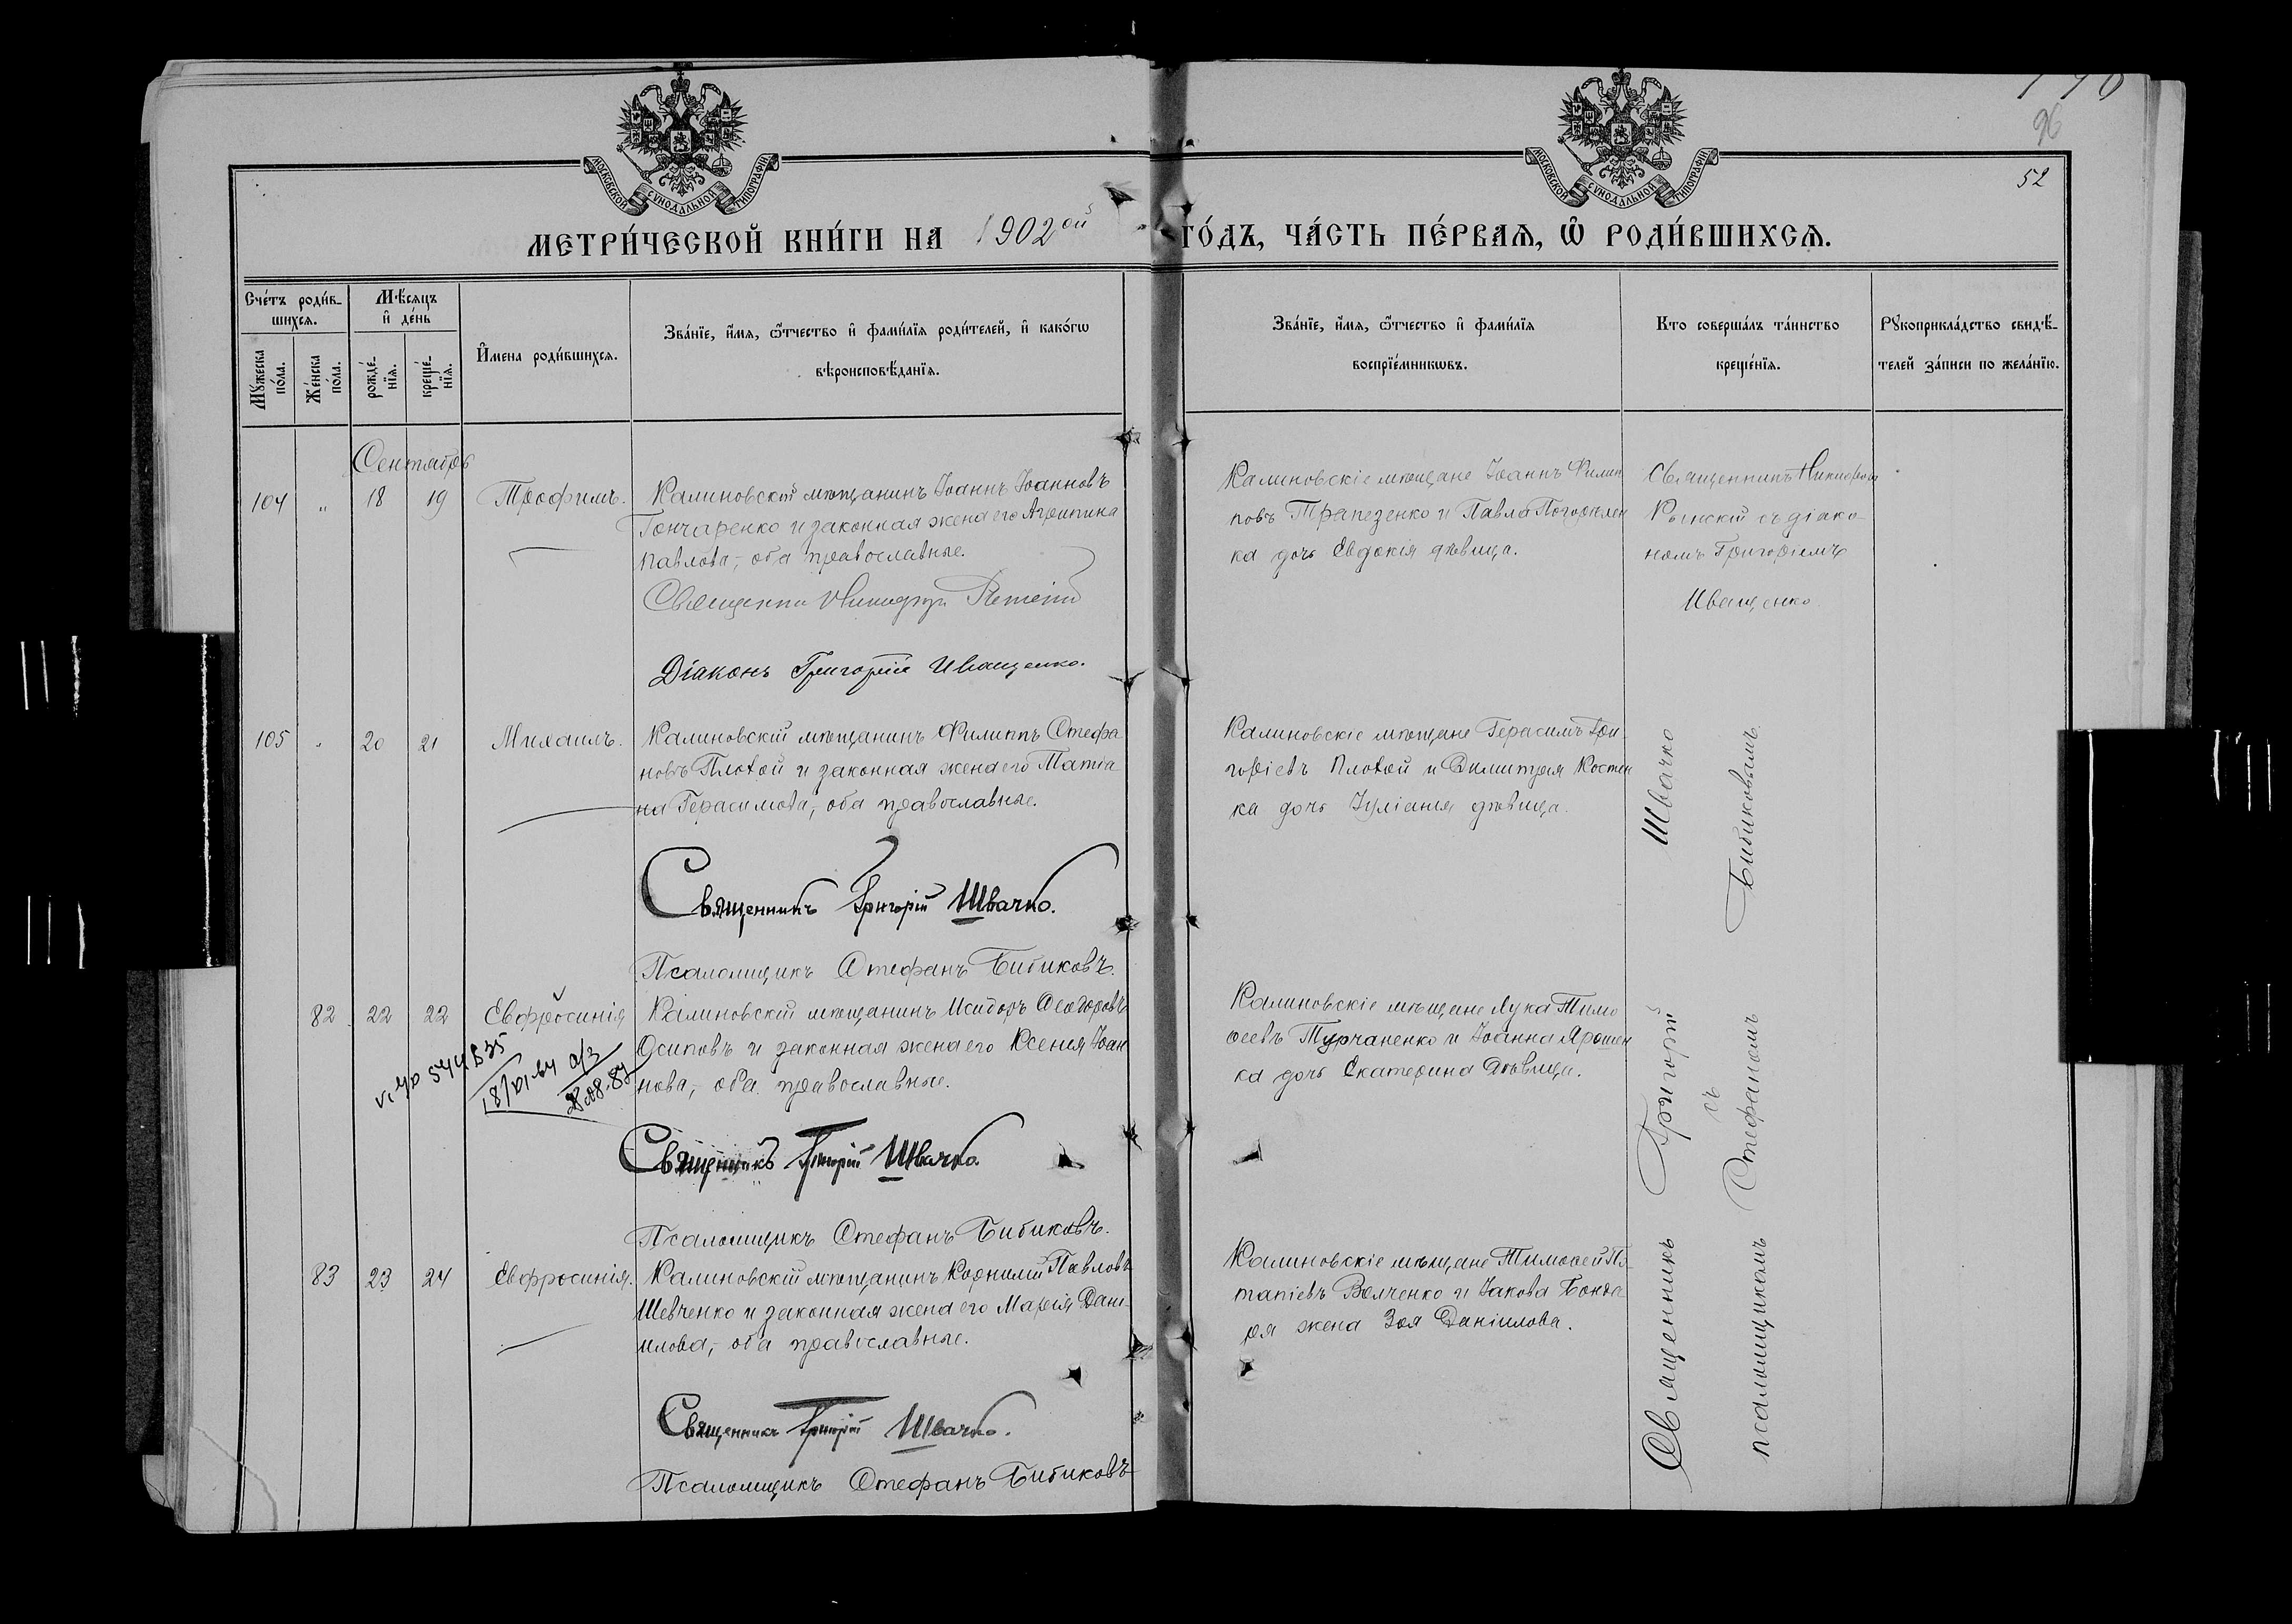 МОСКОВСКОЙ СУНОДАЛЬНОЙ ТИПОГРАФІИ
МОСКОВСКОЙ СУНОДАЛЬНОЙ ТИПОГРАФІИ
96
52
МЕТРИ́ЧЕСКОЙ КНИ́ГИ НА 1902ой ГО́ДЪ, ЧА́СТЬ ПЕ́РВАѦ, Ѡ҆ РОДИ́ВШИХСѦ.
Сче́тъ роди́в-
шихсѧ.
Мꙋ́жеска по́ла.
Же́нска по́ла.
Мѣ́сѧцъ
и҆ де́нь
рожде́-
нїѧ.
креще́-
нїѧ.
И҆мена роди́вшихсѧ.
Зва́нїе, и҆́мѧ, ѻ҆́тчество и҆ фами́лїѧ роди́телей, и҆ како́гѡ
вѣроисповѣ́данїѧ.
Зва́нїе, и҆́мѧ, ѻ҆́тчество и҆ фами́лїѧ
воспрїе́мникѡвъ.
Кто соверша́лъ та́инство
креще́нїѧ.
Рꙋкоприкла́дство свидѣ́-
телей за́писи по жела́нїю.
Сентябрь
104 „ 18 19 Трофимъ.
Калиновскій мѣщанинъ Іоаннъ Іоанновъ
Гончаренко и законная жена его Агрипина
Павлова, оба православные.
Діаконъ Григорій Иващенко.
Калиновскіе мѣщане Іоаннъ Филип
повъ Трапезенко и Павла Погорѣлен
ка дочь Евдокія дѣвица.
Священникъ Никифоръ
съ діако-
номъ Григоріемъ
Иващенко
105 „ 20 21 Михаилъ.
Калиновскій мѣщанинъ Филиппъ Стефа
новъ Плохой и законная жена его Татіа
на Герасимова, оба православные.
Священникъ Григорій Швачко.
Псаломщикъ Стефанъ Бибиковъ.
Калиновскіе мѣщане Герасимъ Гри-
горіевъ Плохой и Димитрія Костен
ка дочь Іуліанія дѣвица.
82 22 22 Евфросинія
Калиновскій мѣщанинъ Исидоръ Ѳеодоровъ
Осиповъ и законная жена его Ксенія Іоан
нова, оба православные.
Священникъ Григорій Швачко.
Псаломщикъ Стефанъ Бибиковъ.
Калиновскіе мѣщане Лука Тимо
ѳеевъ Турчаненко и Іоанна Ярошен
ка дочь Екатерина дѣвица.
83 23 24 Евфросинія.
Калиновскій мѣщанинъ Корнилій Павловъ
Шевченко и законная жена его Марія Дані-
илова, оба православные.
Священникъ Григорій Швачко.
Псаломщикъ Стефанъ Бибиковъ
Калиновскіе мѣщане Тимоѳей По-
тапіевъ Велченко и Іакова Бонда
ря жена Зоя Даніилова.
Священникъ Григорій Швачко
съ
псаломщикомъ Стефаномъ Бибиковымъ